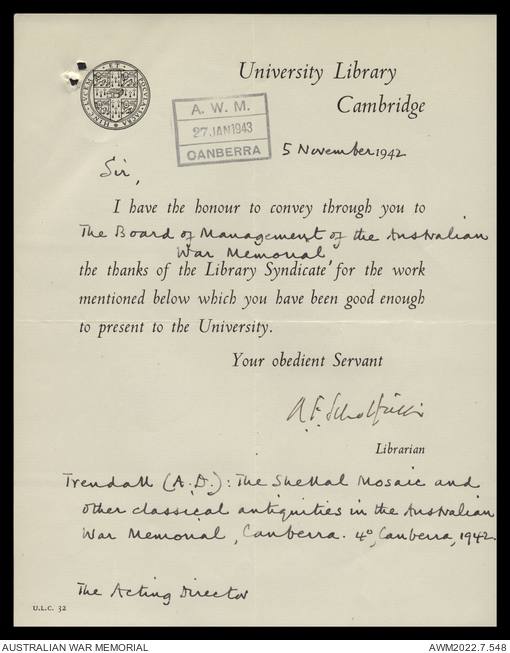 University Library
Cambridge
HINC · LVCEM · ET · POCVLA · SACRA
A. W. M.
27 JAN 1943
CANBERRA
5 November 1942
Sir,
I have the honour to convey through you to
The Board of Management of the Australian
War Memorial,
the thanks of the Library Syndicate for the work
mentioned below which you have been good enough
to present to the University.
Your obedient Servant
A. F. Scholfield
Librarian
Trendall (A.D.): The Shellal Mosaic and
other classical antiquities in the Australian
War Memorial, Canberra. 4°, Canberra, 1942.
The Acting Director
U.L.C. 32
AUSTRALIAN WAR MEMORIAL
AWM2022.7.548